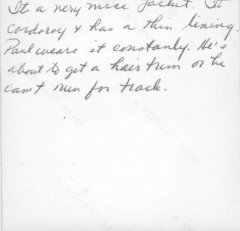 It a very nice jacket. It
corduroy & has a thin lining.
Paul wears it constantly. He's
about to get a hair trim or he
can't run for track.